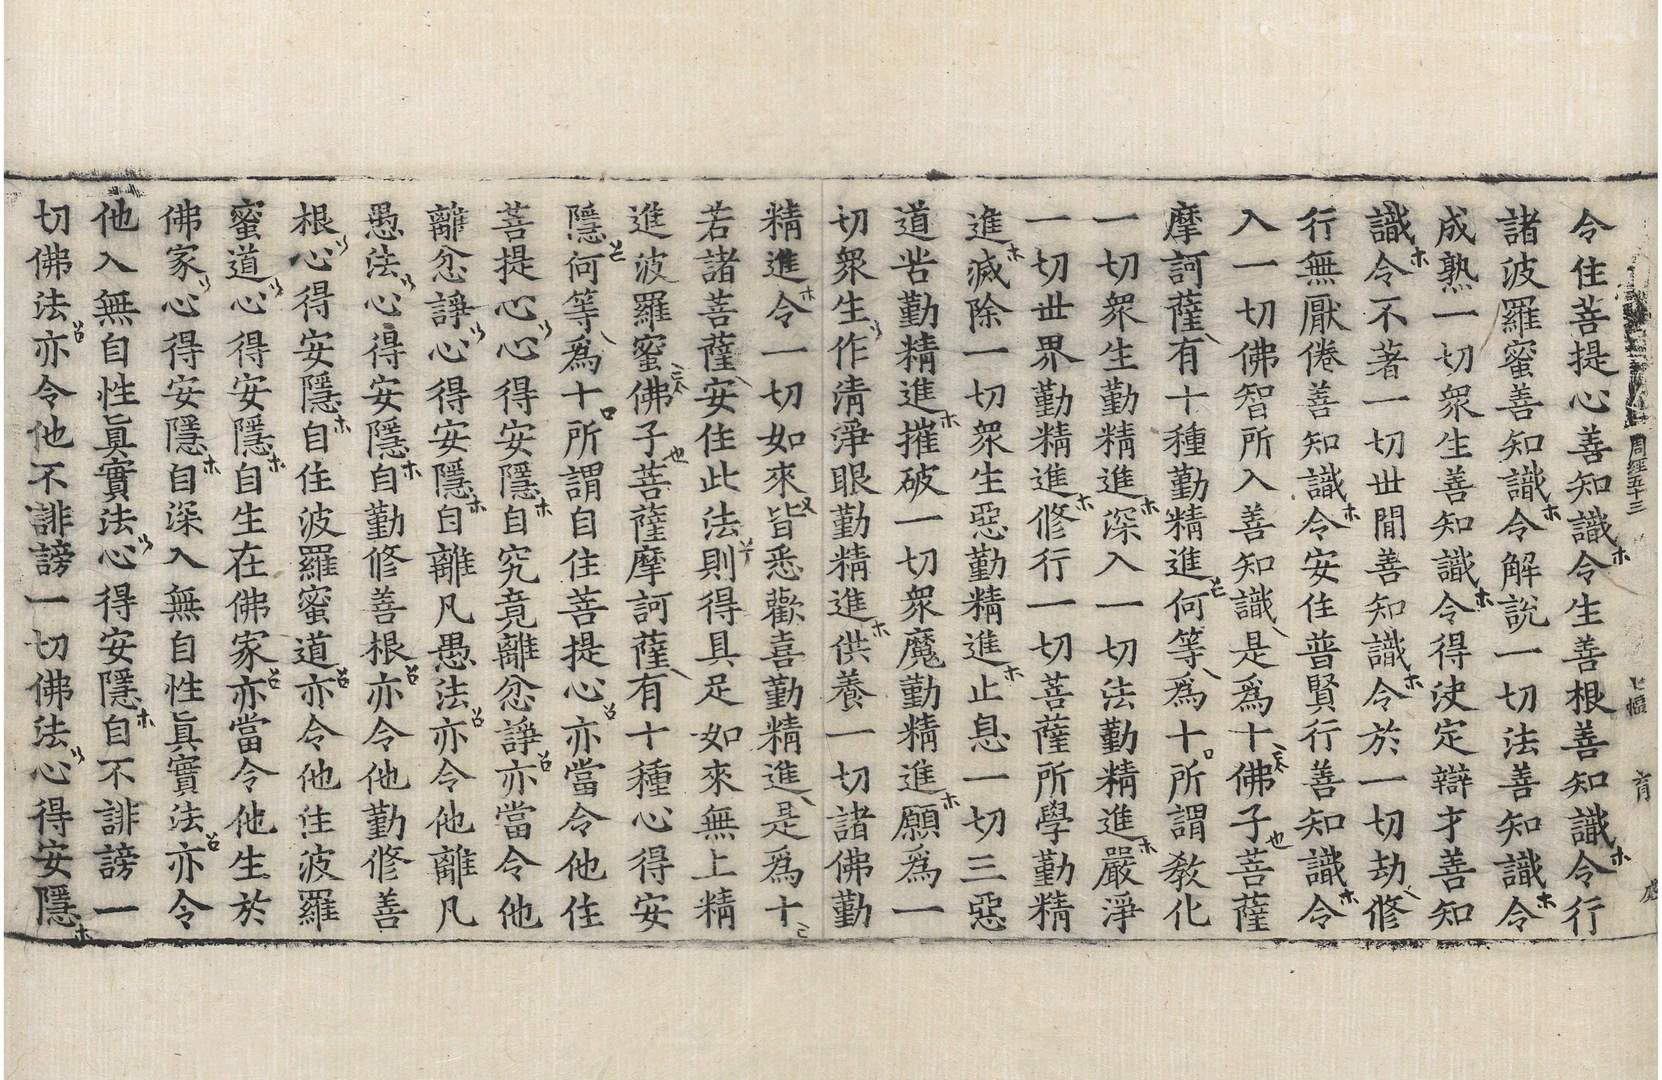 周經五十三
令住菩提心善知識令生善根善知識令行
諸波羅蜜善知識令解說一切法善知識令
成熟一切衆生善知識令得決定辯才善知
識令不著一切世閒善知識令於一切劫修
行無厭倦善知識令安住普賢行善知識令
入一切佛智所入善知識是爲十佛子菩薩
摩訶薩有十種勤精進何等爲十所謂教化
一切衆生勤精進深入一切法勤精進嚴淨
一切世界勤精進修行一切菩薩所學勤精
進滅除一切衆生惡勤精進止息一切三惡
道苦勤精進摧破一切衆魔勤精進願爲一
切衆生作清淨眼勤精進供養一切諸佛勤
精進令一切如來皆悉歡喜勤精進是爲十
若諸菩薩安住此法則得具足如來無上精
進波羅蜜佛子菩薩摩訶薩有十種心得安
隱何等爲十所謂自住菩提心亦當令他住
菩提心心得安隱自究竟離忿諍亦當令他
離忿諍心得安隱自離凡愚法亦令他離凡
愚法心得安隱自勤修善根亦令他勤修善
根心得安隱自住波羅蜜道亦令他住波羅
蜜道心得安隱自生在佛家亦當令他生於
佛家心得安隱自深入無自性眞實法亦令
他入無自性眞實法心得安隱自不誹謗一
切佛法亦令他不誹謗一切佛法心得安隱